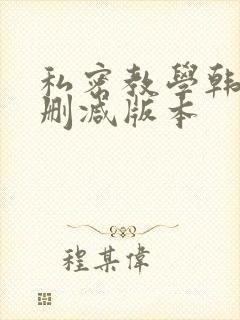 私密教學韩
删减版本
程某偉